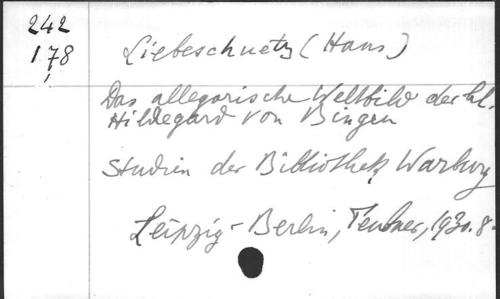 242
178
Liebeschuetz (Hans)
Das allegorische Weltbild der hl.
Hildegard von Bingen
Studien der Bibliothek Warburg
Leipzig-Berlin, Teubner, 1930. 8-